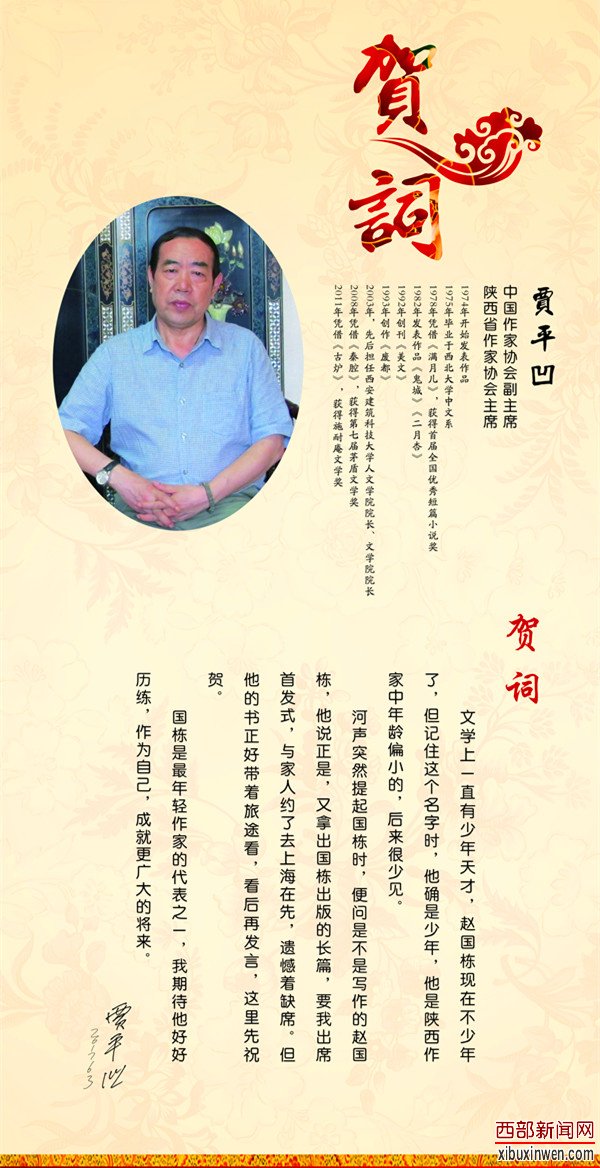 賀詞
賈平凹
中国作家协会副主席
陕西省作家协会主席
1974年开始发表作品
1975年毕业于西北大学中文系
1978年凭借《满月儿》，获得首届全国优秀短篇小说奖
1982年发表作品《鬼城》《二月杏》
1992年创刊《美文》
1993年创作《废都》
2003年，先后担任西安建筑科技大学人文学院院长、文学院院长
2008年凭借《秦腔》，获得第七届茅盾文学奖
2011年凭借《古炉》，获得施耐庵文学奖
贺词
文学上一直有少年天才，赵国栋现在不少年
了，但记住这个名字时，他确是少年，他是陕西作
家中年龄偏小的，后来很少见。
河声突然提起国栋时，便问是不是写作的赵国
栋，他说正是，又拿出国栋出版的长篇，要我出席
首发式，与家人约了去上海在先，遗憾着缺席。但
他的书正好带着旅途看，看后再发言，这里先祝
贺。
国栋是最年轻作家的代表之一，我期待他好好
历练，作为自己，成就更广大的将来。
賈平凹
2017.6.3
西部新闻网
xibuxinwen.com